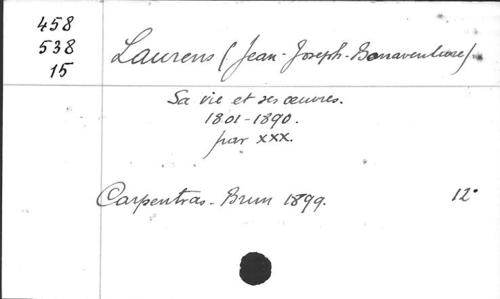 458
538
15
Laurens (Jean-Joseph-Bonaventure).
Sa vie et ses œuvres.
1801-1890.
par xxx.
Carpentras - Brun 1899. 12°